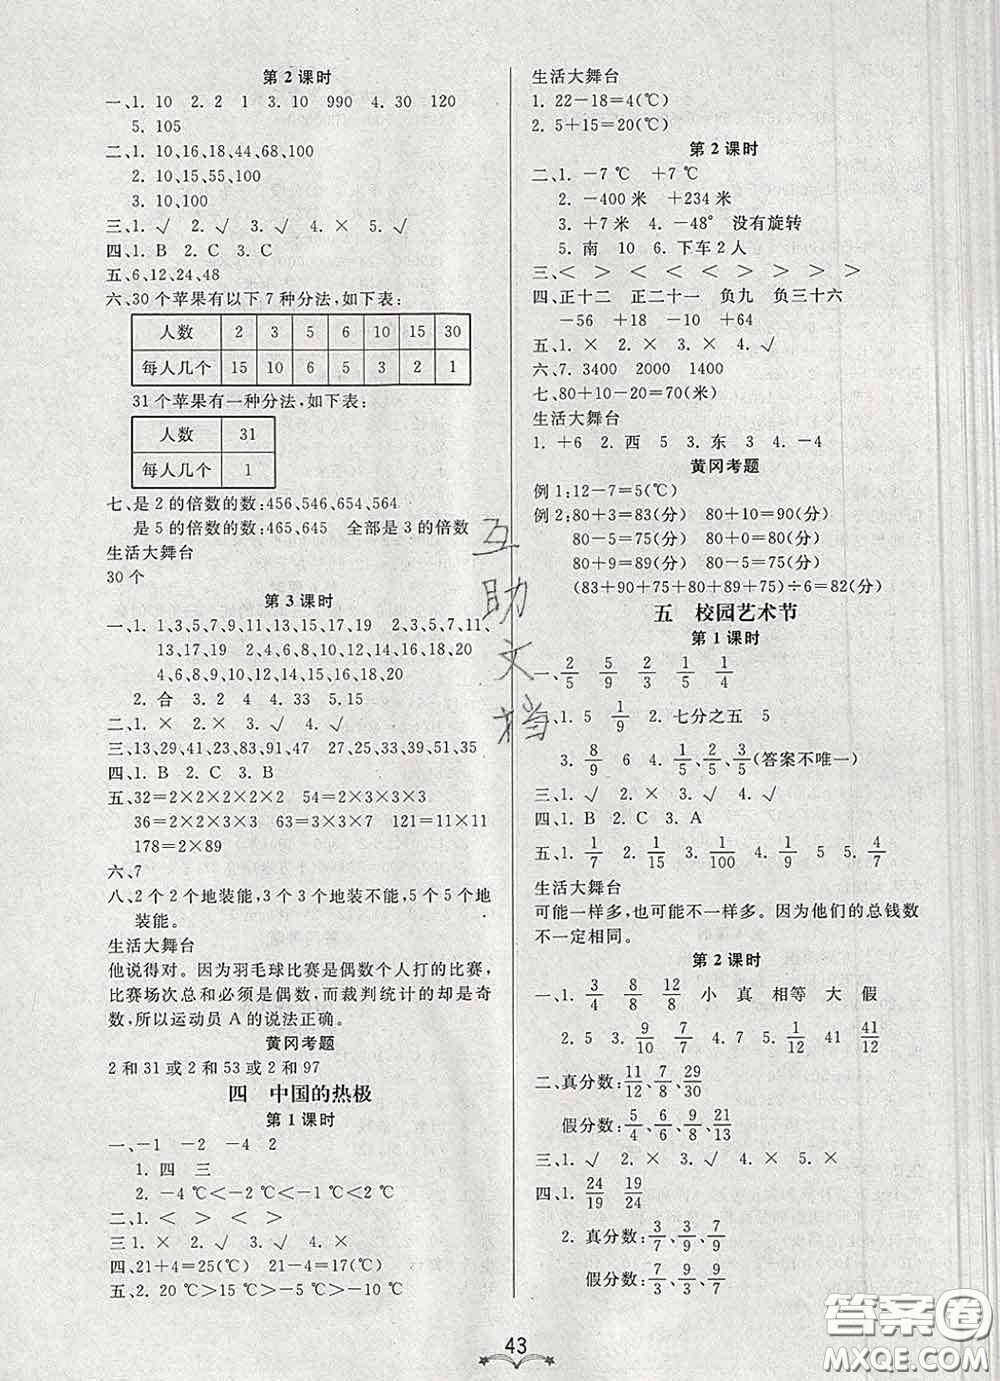 第 2 课时
一、1. 10 2. 2 1 3. 10 990 4. 30 120
5. 105
二、1. 10,16,18,44,68,100
2. 10,15,55,100
3. 10,100
三、1. √ 2. √ 3. √ 4. × 5. √
四、1. B 2. C 3. C
五、6,12,24,48
六、30 个苹果有以下 7 种分法,如下表:
人数 2 3 5 6 10 15 30
每人几个 15 10 6 5 3 2 1
31 个苹果有一种分法,如下表:
人数 31
每人几个 1
七、是 2 的倍数的数:456,546,654,564
是 5 的倍数的数:465,645 全部是 3 的倍数
生活大舞台
30 个
第 3 课时
一、1. 1,3,5,7,9,11,13,15,17,19 2,3,5,7,11,
13,17,19 2,4,6,8,10,12,14,16,18,20
4,6,8,9,10,12,14,15,16,18,20
2. 合 3. 2 4. 33 5. 15
二、1. × 2. × 3. √ 4. √ 5. ×
三、13,29,41,23,53,31,47 27,25,33,39,51,35
四、1. B 2. C 3. B
五、32=2×2×2×2×2 54=2×3×3×3
36=2×2×3×3 63=3×3×7 121=11×11
178=2×89
六、7
八、2 个 2 个地装能,3 个 3 个地装不能,5 个 5 个地
装能。
生活大舞台
他说得对。因为羽毛球比赛是偶数个人打的比赛,
比赛场次总和必须是偶数,而裁判统计的却是奇
数,所以运动员 A 的说法正确。
黄冈考题
2 和 31 或 2 和 53 或 2 和 97
四 中国的热极
第 1 课时
一、-1 -2 -4 2
1. 四 三
2. -4 ℃<-2 ℃<-1 ℃<2 ℃
二、1. < > < >
三 1. × 2. √ 3. √ 4. ×
四、21+4=25(℃) 21-4=17(℃)
五、2. 20 ℃>15 ℃>-5 ℃>-10 ℃
生活大舞台
1. 22-18=4(℃)
2. 5+15=20(℃)
第 2 课时
二、1. -7 ℃ +7 ℃
2. -400 米 +234 米
3. +7 米 4. -48° 没有旋转
5. 南 10 6. 下车 2 人
三、< < > < > > > >
四、正十二 正二十一 负九 负三十六
-56 +18 -10 +64
五、1. × 2. × 3. × 4. √
六、7. 3400 2000 1400
七、80+10-20=70(米)
生活大舞台
1. +6 2. 西 5 3. 东 3 4. -4
黄冈考题
例 1:12-7=5(℃)
例 2:80+3=83(分) 80+10=90(分)
80-5=75(分) 80+0=80(分)
80+9=89(分) 80-5=75(分)
(83+90+75+80+89+75)÷6=82(分)
五 校园艺术节
第 1 课时
一、2/5 5/9 3/4 1/5 1/4
二、1. 5 1/9 2. 七分之五 5
3. 8/9 6 4. 1/5、2/5、3/5(答案不唯一)
三、1. √ 2. × 3. √ 4. √
四、1. B 2. C 3. A
五、1. 1/7 2. 1/15 3. 1/100 4. 1/9 5. 4/7
生活大舞台
可能一样多,也可能不一样多。因为他们的总钱数
不一定相同。
第 2 课时
一、1. 3/4 8/8 12/8 小 真 相等 大 假
2. 5 3. 9/10 7/7 4. 7 5. 1/12 41 41/12
二、真分数:11/12、7/8、29/30
假分数:5/4、6/6、9/8、21/13
三、1. √ 2. × 3. √ 4. × 5. ×
四、1. 24/19 19/24
2. 真分数:3/7、3/9、7/9
假分数:7/3、9/3、9/7
43
互
助
文
档
答案圈
MXQE.COM